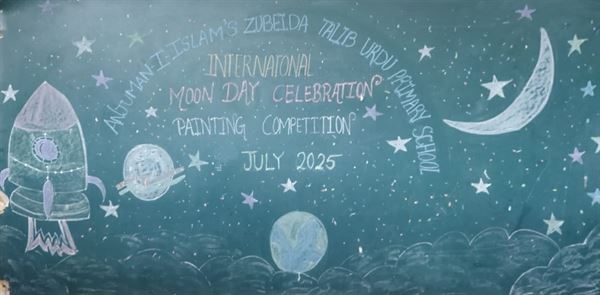 ANJUMAN-I-ISLAM'S ZUBEIDA TALIB URDU PRIMARY SCHOOL
INTERNATONAL
MOON DAY CELEBRATION
PAINTING COMPETITION
JULY 2025